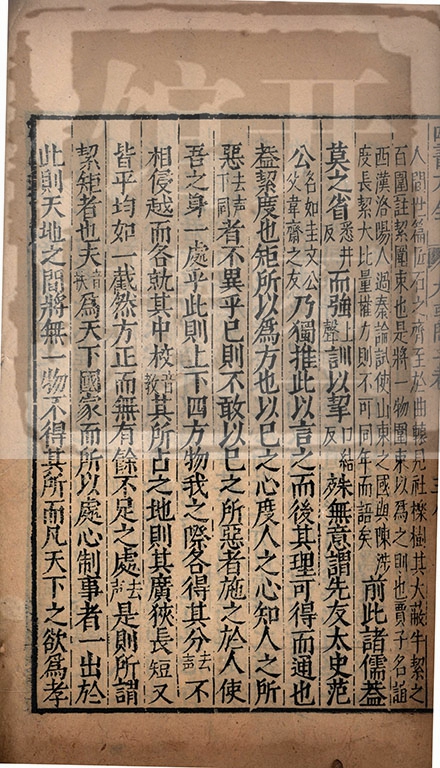 人間世篇匠石之齊至於曲轅見社櫟樹其大蔽牛絜之
百圍註絜圍束也是將一物圍束以為之則也賈子名誼
西漢洛陽人過秦論試使山東之國與陳涉
度長絜大比量權力則不可同年而語矣前此諸儒蓋
莫之省悉井反而強上聲訓以挈口結反殊無意謂先友太史范
公名如圭文公父韋齋之友乃獨推此以言之而後其理可得而通也
蓋絜度也矩所以爲方也以己之心度人之心知人之所
惡去聲下同者不異乎己則不敢以己之所惡者施之於人使
吾之身一處乎此則上下四方物我之際各得其分去聲不
相侵越而各就其中校音教其所占之地則其廣狹長短又
皆平均如一截然方正而無有餘不足之處去聲是則所謂
絜矩者也夫音扶爲天下國家而所以處心制事者一出於
此則天地之間將無一物不得其所而凡天下之欲爲孝